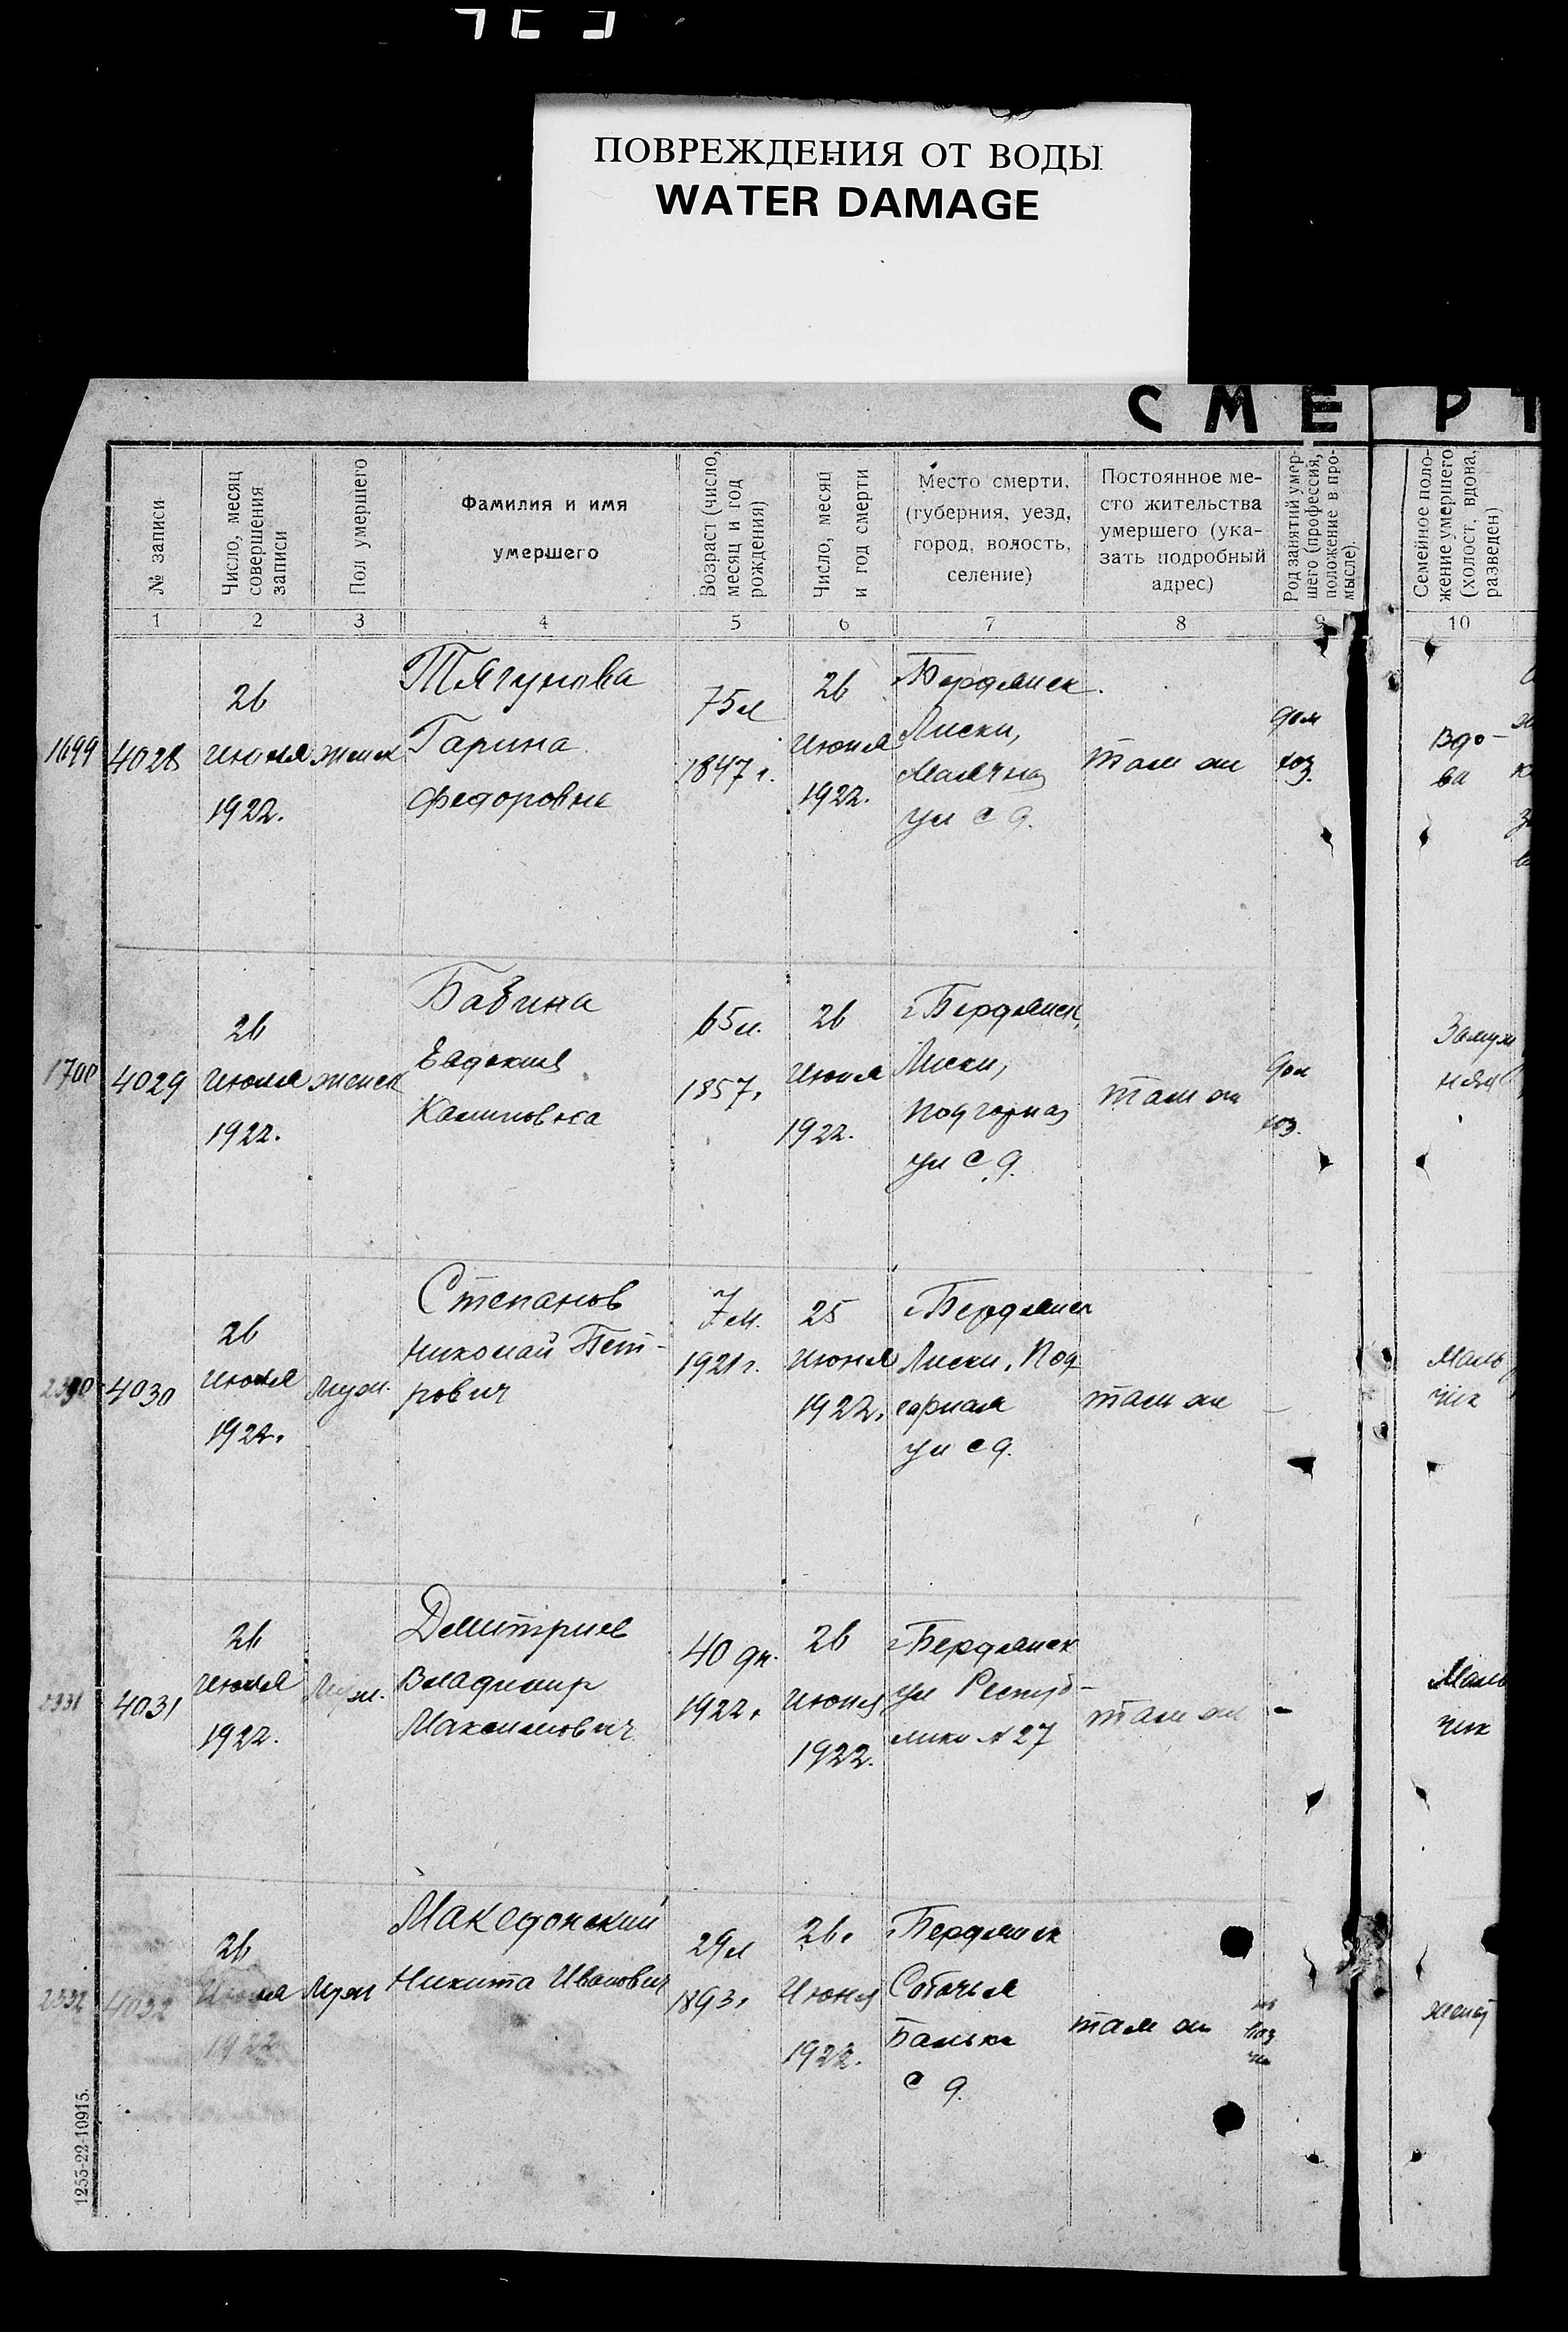 ПОВРЕЖДЕНИЯ ОТ ВОДЫ
WATER DAMAGE
СМЕРТ
№ записи
Число, месяц
совершения
записи
Пол умершего
Фамилия и имя
умершего
Возраст (число,
месяц и год
рождения)
Число, месяц
и год смерти
Место смерти,
(губерния, уезд,
город, волость,
селение)
Постоянное ме-
сто жительства
умершего (ука-
зать подробный
адрес)
Род занятий умер-
шего (профессия,
положение в про-
мысле).
Семейное поло-
жение умершего
(холост, вдова,
разведен)
1 2 3 4 5 6 7 8 9 10
1699
4028
26
июня
1922.
женск
Тягунова
Гарина
Федоровна
75л
1847 г.
26
июня
1922.
Бердянск.
Лиски,
ул с д.
там же
дом
хоз.
вдо-
ва
1700
4029
26
июня
1922.
женск
Бабина
Евдокия
Калиновна
65л.
1857.
26
июня
1922.
г Бердянск,
Лиски,
Подгорная
ул с д.
там же
дом
хоз.
Замуж
няя
4030
26
июня
1922.
муж.
Степанов
Николай Пет-
рович
7 м.
1921 г.
25
июня
1922.
г Бердянск
Лиски, Под
горная
ул с д.
там же
Маль
чик
2331
4031
26
июня
1922.
Муж.
Дмитриев
Владимир
Максимович
40 дн.
1922.
26
июня
1922.
г Бердянск
ул Респуб-
лики № 27
там же
-
Маль
чик
2332
4032
26
Июня
1922
Муж
Македонский
Никита Иванович
29л
1893.
26.
Июня
1922.
г Бердянск
Собачья
Балка
с д.
там же
женат
1255-22-10915.